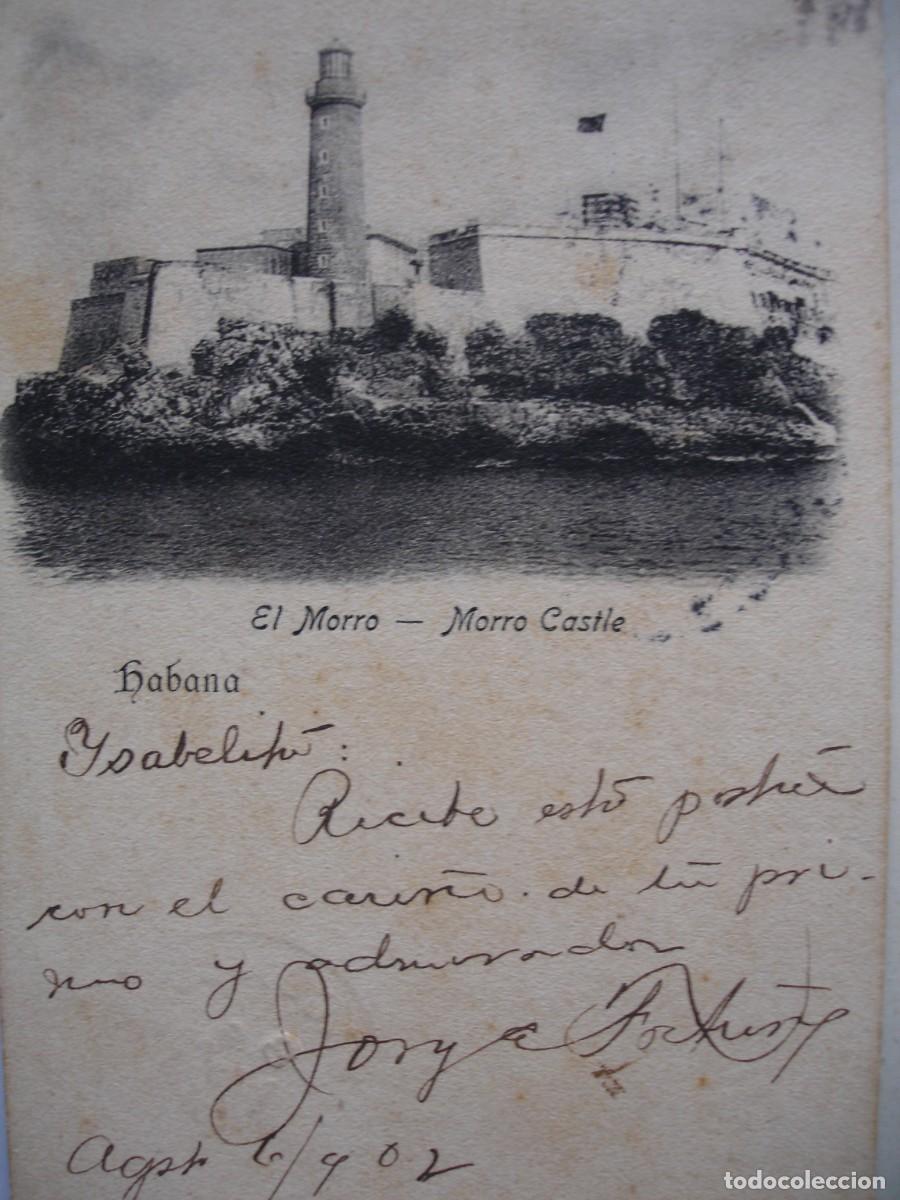 El Morro — Morro Castle
Habana
Ysabelita:
Recibe esta postal
con el cariño de tu pri-
mo y admirador
Jorge
Agst 6/902
todocoleccion